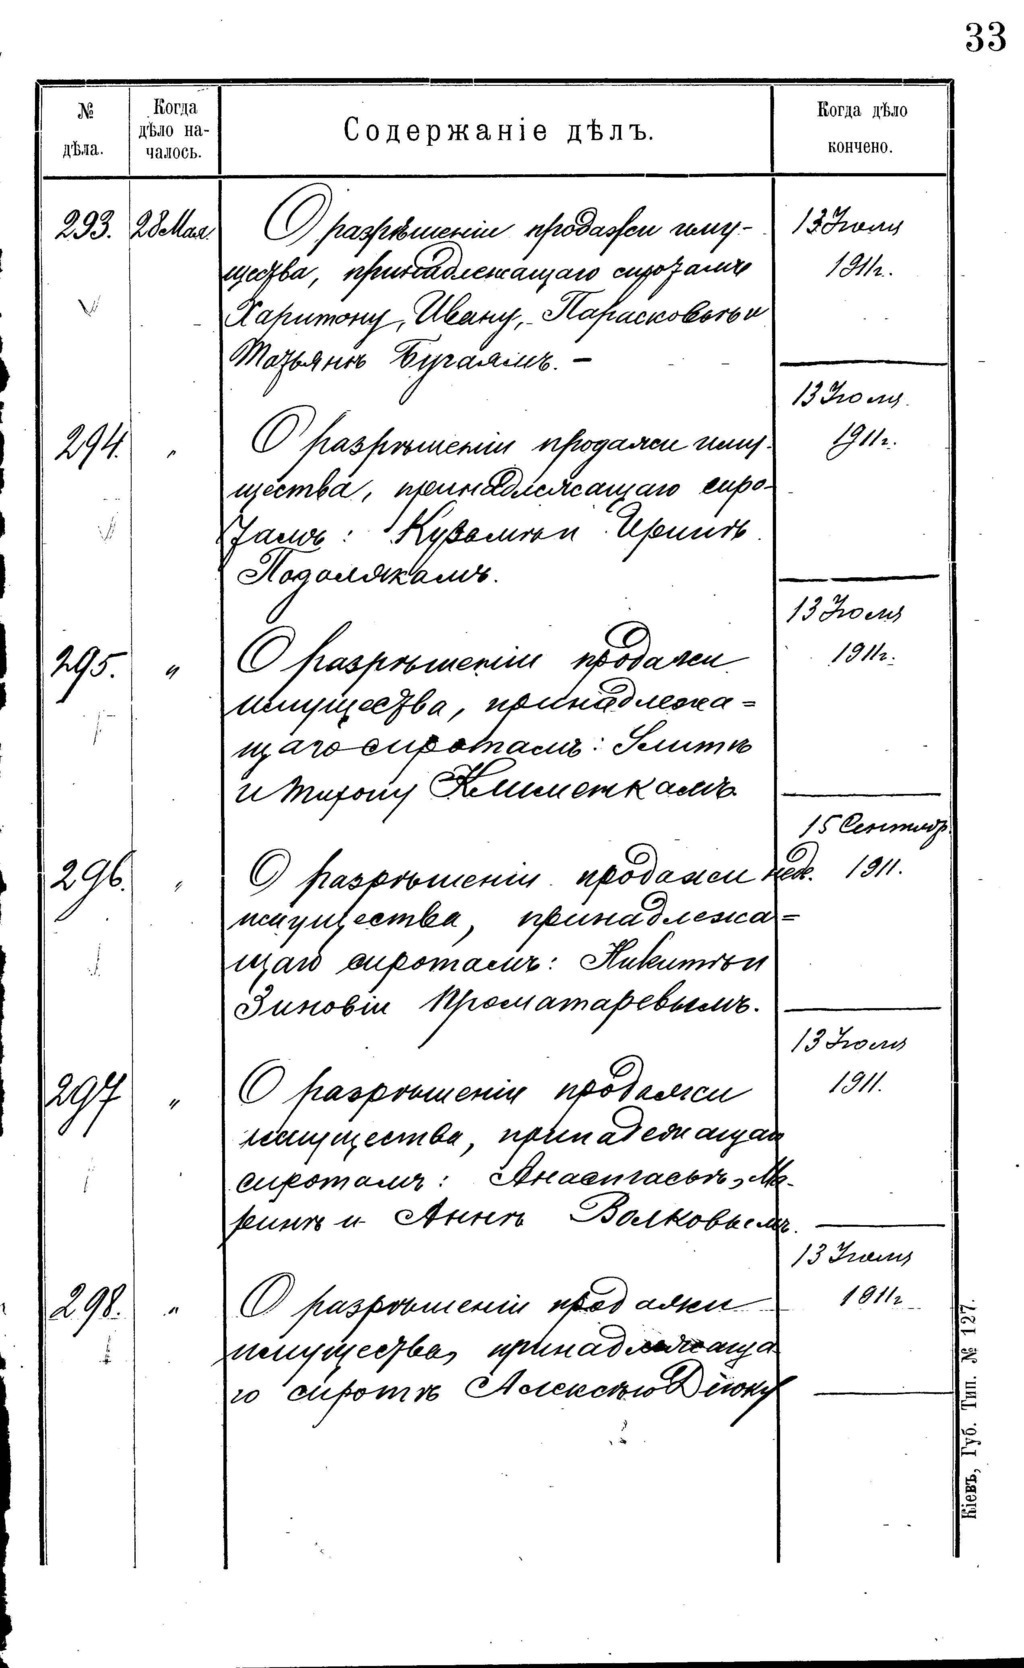 33
№ дѣла.
Когда дѣло на-чалось.
Содержаніе дѣлъ.
Когда дѣло кончено.
293. 28 Мая. О разрѣшеніи продажи иму- 13 Іюля
щества, принадлежащаго сиротамъ 1911 г.
Харитону, Ивану, Парасковьѣ и
Татьянѣ Бугаямъ. –
13 Іюля
294. „ О разрѣшеніи продажи иму- 1911 г.
щества, принадлежащаго сиро-
тамъ: Кузьмѣ и Иринѣ
Подолякамъ.
13 Іюля
295. „ О разрѣшеніи продажи 1911 г.
имущества, принадлежа=
щаго сиротамъ:
и
15 Сентябр.
296. „ О разрѣшеніи продажи нед. 1911.
имущества, принадлежа=
щаго сиротамъ: Никитѣ и
Зиновіи
13 Іюля
297 „ О разрѣшеніи продажи 1911.
имущества,
сиротамъ: Анастасьѣ, Ма-
ринѣ и Аннѣ Волковымъ.
13 Іюля
298. „ О разрѣшеніи продажи 1911 г
имущества, принадлежаща
го сиротѣ Алексѣю Дѣюку
Кіевъ, Губ. Тип. № 127.